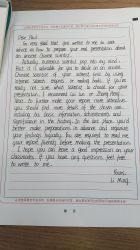 Dear Paul,
I'm very glad that you wrote to me to ask
advice on how to prepare your oral presentation about
an ancient Chinese scientist.
Actually, numerous wonderful pop into my mind.
First, it is advisable for you to decide on an ancient
Chinese scientist of your interest first by using
Internet search engines or reading books. If you're
really not sure which scientist to choose for your
presentation, I recommend Cai Lun or Zhang Heng.
Next, to further make your report more attractive,
you should find more details of the chosen one,
including his basic information, achievements and
significance in the history. In the last place, you'd
better make preparations in advance and organize
your findings logically. You are required to read out
your report fluently before making the presentation.
I hope you can leave a good impression on your
classmates. If you have any questions, feel free
to write to me.
Yours,
Li Ming